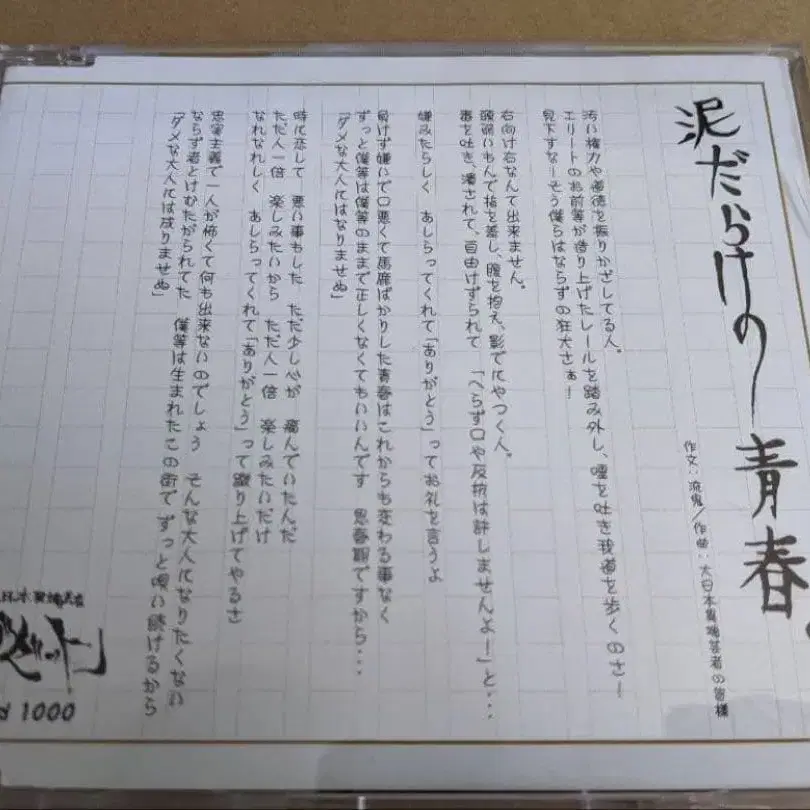 泥だらけの青春。
作文:流鬼/作曲:大日本異端芸者の皆様
汚い権力や道徳を振りかざしてる人。
エリートのお前等が造り上げたレールを踏み外し、唾を吐き我道を歩くのさー
見下すなーそう僕らはならずの狂犬さぁ!
右向け右なんて出来ません。
頭弱いもんで指を差し、腹を抱え、影でにやつく人。
毒を吐き、潰されて、自由けずられて 「へらず口や反抗は許しませんよー」と・・・
嫌みたらしく あしらってくれて「ありがとう」ってお礼を言うよ
負けず嫌いで口悪くて馬鹿ばかりした青春はこれからも変わる事なく
ずっと僕等は僕等のままで正しくなくてもいいんです 思春期ですから・・・
「ダメな大人にはなりませぬ」
時に恋して 悪い事もした ただ少し心が 痛んでいたんだ
ただ人一倍 楽しみたいから ただ人一倍 楽しみたいだけ
なれなれしく あしらってくれて「ありがとう」って蹴り上げてやるさ
忠実主義で一人が怖くて何も出来ないのでしょう そんな大人になりたくない
ならず者とけむたがられてた 僕等は生まれたこの街で ずっと唄い続けるから
「ダメな大人には成りませぬ」
本異端芸者
ガゼット」
d 1000